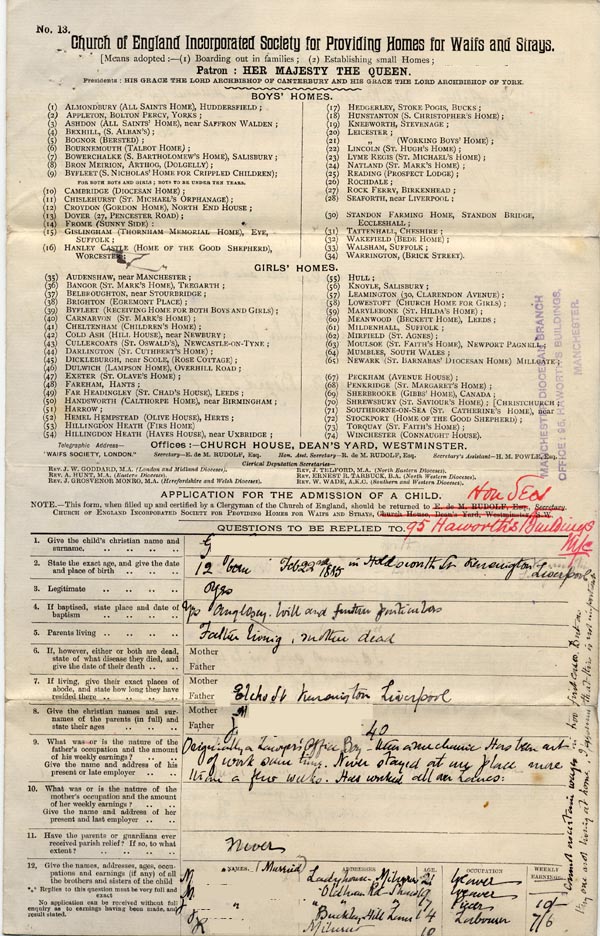 No. 13.
Church of England Incorporated Society for Providing Homes for Waifs and Strays.
[Means adopted:—(1) Boarding out in families; (2) Establishing small Homes;
Patron: HER MAJESTY THE QUEEN.
Presidents: HIS GRACE THE LORD ARCHBISHOP OF CANTERBURY AND HIS GRACE THE LORD ARCHBISHOP OF YORK.
BOYS' HOMES.
(1) ALMONDBURY (ALL SAINTS HOME), HUDDERSFIELD;
(2) APPLETON, BOLTON PERCY, YORKS;
(3) ASHDON (ALL SAINTS' HOME), near SAFFRON WALDEN;
(4) BEXHILL, (S. ALBAN'S);
(5) BOGNOR (BERSTED);
(6) BOURNEMOUTH (TALBOT HOME);
(7) BOWERCHALKE (S. BARTHOLOMEW'S HOME), SALISBURY;
(8) BRON MEIRION, ARTHOG, (DOLGELLY);
(9) BYFLEET (S. NICHOLAS' HOME FOR CRIPPLED CHILDREN);
FOR BOTH BOYS AND GIRLS; BOYS TO BE UNDER TEN YEARS.
(10) CAMBRIDGE (DIOCESAN HOME);
(11) CHISLEHURST (ST. MICHAEL'S ORPHANAGE);
(12) CROYDON (GORDON HOME), NORTH END HOUSE;
(13) DOVER (27, PENCESTER ROAD);
(14) FROME (SUNNY SIDE):
(15) GISLINGHAM (THORNHAM MEMORIAL HOME), EYE,
SUFFOLK;
(16) HANLEY CASTLE (HOME OF THE GOOD SHEPHERD),
WORCESTER;
(17) HEDGERLEY, STOKE POGIS, BUCKS;
(18) HUNSTANTON (S. CHRISTOPHER'S HOME);
(19) KNEBWORTH, STEVENAGE;
(20) LEICESTER;
(21) „ (WORKING BOYS' HOME);
(22) LINCOLN (ST. HUGH'S HOME);
(23) LYME REGIS (ST. MICHAEL'S HOME);
(24) NATLAND (ST. MARK'S HOME);
(25) READING (PROSPECT LODGE);
(26) ROCHDALE;
(27) ROCK FERRY, BIRKENHEAD;
(28) SEAFORTH, near LIVERPOOL;
(30) STANDON FARMING HOME, STANDON BRIDGE,
ECCLESHALL;
(31) TATTENHALL, CHESHIRE;
(32) WAKEFIELD (BEDE HOME);
(33) WALSHAM, SUFFOLK;
(34) WARRINGTON, (BRICK STREET).
GIRLS' HOMES.
(35) AUDENSHAW, near MANCHESTER;
(36) BANGOR (ST. MARK'S HOME), TREGARTH;
(37) BELBROUGHTON, near STOURBRIDGE;
(38) BRIGHTON (EGREMONT PLACE);
(39) BYFLEET (RECEIVING HOME FOR BOTH BOYS AND GIRLS);
(40) CARNARVON (ST. MARK'S HOME);
(41) CHELTENHAM (CHILDREN'S HOME);
(42) COLD ASH (HILL HOUSE), near NEWBURY;
(43) CULLERCOATS (ST. OSWALD'S), NEWCASTLE-ON-TYNE;
(44) DARLINGTON (ST. CUTHBERT'S HOME);
(45) DICKLEBURGH, near SCOLE, (ROSE COTTAGE);
(46) DULWICH, (LAMPSON HOME), OVERHILL ROAD;
(47) EXETER (ST. OLAVE'S HOME);
(48) FAREHAM, HANTS;
(49) FAR HEADINGLEY (ST. CHAD'S HOUSE), LEEDS;
(50) HANDSWORTH (CALTHORPE HOME), near BIRMINGHAM;
(51) HARROW;
(52) HEMEL HEMPSTEAD (OLIVE HOUSE), HERTS;
(53) HILLINGDON HEATH (FIRS HOME)
(54) HILLINGDON HEATH (HAYES HOUSE), near UXBRIDGE;
(55) HULL;
(56) KNOYLE, SALISBURY;
(57) LEAMINGTON (30, CLARENDON AVENUE);
(58) LOWESTOFT (CHURCH HOME FOR GIRLS);
(59) MARYLEBONE (ST. HILDA'S HOME);
(60) MEANWOOD (BECKETT HOME), LEEDS;
(61) MILDENHALL, SUFFOLK;
(62) MIRFIELD (ST. AGNES);
(63) MOULSOE (ST. FAITH'S HOME), NEWPORT PAGNELL
(64) MUMBLES, SOUTH WALES;
(66) NEWARK (ST. BARNABAS' DIOCESAN HOME) MILLGATE;
(67) PECKHAM (AVENUE HOUSE);
(68) PENKRIDGE (ST. MARGARET'S HOME);
(69) SHERBROOKE (GIBBS' HOME), CANADA;
(70) SHREWSBURY (SAVIOUR'S HOUSE); CHRISTCHURCH;
(71) SOUTHBORNE-ON-SEA (ST. CATHERINE'S HOME), near
(72) STOCKPORT (HOME OF THE GOOD SHEPHERD);
(73) TORQUAY (ST. FAITH'S HOME)
(74) WINCHESTER (CONNAUGHT HOUSE).
MANCHESTER DIOCESAN BRANCH
OFFICE: 95, HAWORTH'S BUILDINGS,
MANCHESTER.
Telegraphic Address—
"WAIFS SOCIETY, LONDON."
Offices:—CHURCH HOUSE, DEAN'S YARD, WESTMINSTER.
Secretary—E. DE M. RUDOLF, ESQ. Hon. Asst. Secretary—R. DE M. RUDOLF, ESQ. Secretary's Assistant—H. M. FOWLE, ESQ.
Clerical Deputation Secretaries—
REV. J. W. GODDARD, M.A. (London and Midland Dioceses).
REV. A. HUNT, M.A. (Eastern Dioceses).
REV. J. GROSVENOR MONRO, M.A. (Herefordshire and Welsh Dioceses).
REV. J. TELFORD, M.A. (North Eastern Dioceses)
REV. ERNEST R. TARBUCK, B.A. (North Western Dioceses)
REV. W. WADE, A.K.C. (Southern and Western Dioceses).
APPLICATION FOR THE ADMISSION OF A CHILD.
Hon Sec
NOTE.—This form, when filled up and certified by a Clergyman of the Church of England, should be returned to E. de M. RUDOLF, Esq., Secretary
CHURCH OF ENGLAND INCORPORATED SOCIETY FOR PROVIDING HOMES FOR WAIFS AND STRAYS, Church House, Dean's Yard, Westminster, S.W.
QUESTIONS TO BE REPLIED TO.
95 Haworths Buildings
1. Give the child's christian name and
surname.
G
2. State the exact age, and give the date
and place of birth
12 Years Feb 22nd 1885 in Holdsworth St Kensington Liverpool
3. Legitimate
Yes
4. If baptised, state place and date of
baptism
Yes Anglosey. Will send further particulars
5. Parents living
Father living, mother dead
6. If, however, either or both are dead,
state of what disease they died, and
give the date of their death
Mother
Father
7. If living, give their exact places of
abode, and state how long they have
resided there
Mother
Father Elcho St Kensington Liverpool
8. Give the christian names and sur-
names of the parents (in full) and
state their ages
Mother M
Father J 40
9. What was or is the nature of the
father's occupation and the amount
of his weekly earnings?
Give the name and address of his
present or late employer
Originally a Lawyers Office Boy. Has been out
of work some time. Never stayed at any place more
than a few weeks. Has worked all over Lancs.
10. What was or is the nature of the
mother's occupation and the amount
of her weekly earnings?
Give the name and address of her
present and last employer
11. Have the parents or guardians ever
received parish relief? If so, to what
extent?
Never
12. Give the names, addresses, ages, occu-
pations and earnings (if any) of all
the brothers and sisters of the child
"." Replies to this question must be very full and
exact
No application can be received without full
enquiry as to earnings having been made, and
result stated.
NAMES. (Married) ADDRESSES AGE. OCCUPATION WEEKLY
EARNINGS.
M Ladyhouse Milnrow 21 Weaver
M Oldham Rd 19 Weaver
J " " 17 10/-
J Buckley Hill Lane 14 Labourer 7/6
Milnrow 10
Cannot ascertain wages